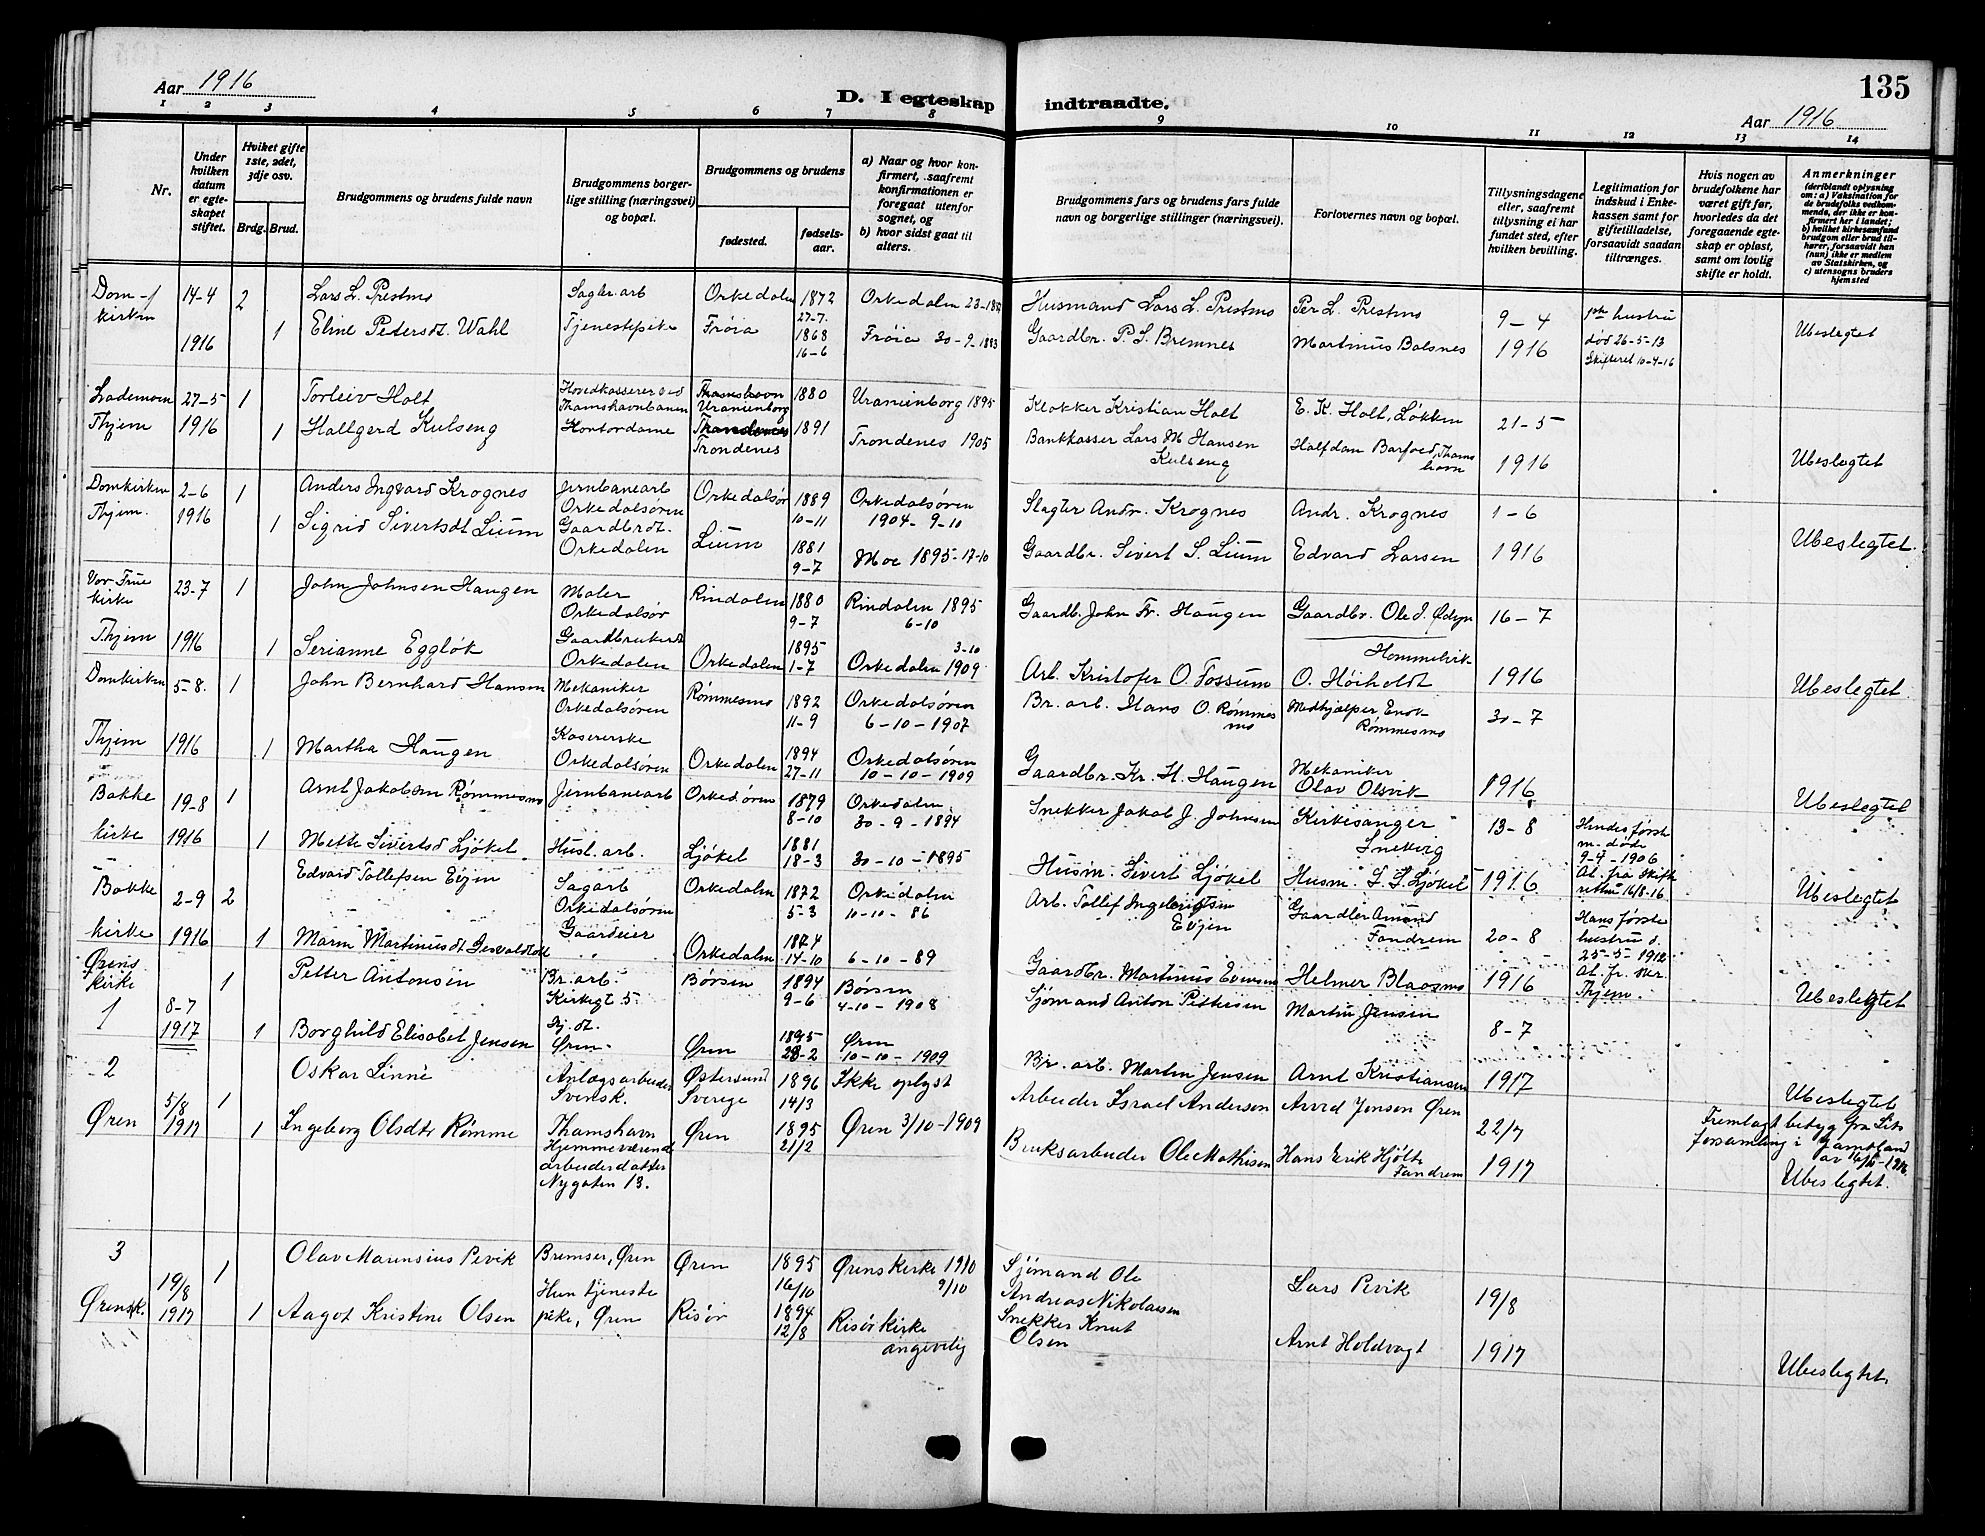 Aar 1916
D. I egteskap
indtraadte.
135
Aar 1916
1 2 3 4 5 6 7 8 9 10 11 12 13 14
Nr.
Under hvilken datum er egteskapet stiftet.
Hviket gifte 1ste, 2det, 3dje osv.
Brdg. Brud.
Brudgommens og brudens fulde navn
Brudgommens borgerlige stilling (næringsvei) og bopæl.
Brudgommens og brudens
fødested.
fødselsaar.
a) Naar og hvor konfirmert, saafremt konfirmationen er foregaat utenfor sognet, og
b) hvor sidst gaat til alters.
Brudgommens fars og brudens fars fulde navn og borgerlige stillinger (næringsvei).
Forlovernes navn og bopæl.
Tillysningsdagene eller, saafremt tillysning ei har fundet sted, efter hvilken bevilling.
Legitimation for indskud i Enkekassen samt for giftetilladelse, forsaavidt saadan tiltrænges.
Hvis nogen av brudefolkene har været gift før, hvorledes da det foregaaende egteskap er opløst, samt om lovlig skifte er holdt.
Anmerkninger
(deriblandt oplysning om: a) Vaksination for de brudefolks vedkommende, der ikke er konfirmert her i landet; b) hvilket kirkesamfund brudgom eller brud tilhører, forsaavidt han (hun) ikke er medlem av Statskirken, og c) utensogns bruders hjemsted
Domkirken 14-4 2 Lars L. Prestmo Sagbr. arb Orkedalen 1872 27-7. Orkedalen 23- Husmand Lars L. Prestmo Per L. Prestmo 9-4 hustru
1916 1 Eline Petersdt. Wahl Tjenestepike Frøia 1868 16-6 Frøia 30-9-1883 Gaardbr. P. S. Bremnes Martinus Balsnes 1916 død 26-5-13 Skifteret 10-4-16 Ubeslegtet
Lademoen 27-5 1 Torleiv Holt Hovedkasserer ved Thamshavnbanen Thamshavn Uranienborg 1880 Uranienborg 1895 Klokker Kristian Holt E. K. Holt, Løkken 21-5
Thjem 1916 1 Hallgerd Kulseng Kontordame Trondenes 1891 Trondenes 1905 Bankkasser Lars M Hansen Kulseng Halfdan Barfoed, Thamshavn 1916 Ubeslegtet
Domkirken 2-6 1 Anders Ingvard Krognes Jernbanearb Orkedalsøren Orkedalsør 1889 10-11 Orkedalsøren 1904-9-10 Slagter Andr. Krognes Andr. Krognes 1-6
Thjem. 1916 1 Sigrid Sivertsdt Lium Gaardbrdt. Orkedalen Lium 1881 9-7 Moe 1895-17-10 Gaardbr. Sivert S. Lium Edvard Larsen 1916 Ubeslegtet.
Vor Frue kirke 23-7 1 John Johnsen Haugen Maler Orkedalsør Rindalen 1880 9-7 Rindalen 1895 6-10 Gaardb. John Fr. Haugen Gaardbr. Ole J. 16-7
Thjem 1916 1 Serianne Eggløk Orkedalen Orkedalen 1895 1-7 3-10 Orkedalen 1909 Arb. Kristofer O. Fossum Hommelvik O. Høiholdt 1916 Ubeslegtet
Domkirken 5-8. 1 John Bernhard Hansen Mekaniker Orkedalsøren Rømmesmo 1892 11-9 Orkedalsøren 6-10-1907 Br. arb. Hans O. Rømmesmo Medhjælper Enok Rømmesmo 30-7
Thjem 1916 1 Martha Haugen Kasererske Orkedalsøren Orkedalen 1894 27-11 Orkedalsøren 10-10-1909 Gaardbr. Kr. H. Haugen Mekaniker Olav Olsvik 1916 Ubeslegtet
Bakke 19-8 1 Arnt Jakobsen Rømmesmo Jernbanearb Orked.øren 1879 8-10 Orkedalen 30-9-1894 Snekker Jakob J. Johnsen Kirkesanger 13-8
kirke 1916 1 Mette Sivertsd Ljøkel Husl. arb. Ljøkel 1881 18-3 30-10-1895 Husm. Sivert Ljøkel Husm. S. S. Ljøkel 1916 Hendes første m. døde 9-4-1906 At. fra Skifteretten 16/8-16 Ubeslegtet
Bakke 2-9 2 Edvard Tollefsen Evjen Sagarb Orkedalsøren Orkedalen 1872 5-3 Orkedalen 10-10-86 Arb. Tollef Ingebrigtsen Evjen Gaardbr Amund Fandrem 20-8
kirke 1916 1 Maren Martinusdt Gaardeier Orkedalen 1874 14-10 6-10-89 Gaardbr. Martinus Evensen Helmer Blaasmo 1916 Hans første hustru d. 25-5-1912 At. fr. Thjem. Ubeslegtet
Ørens kirke
1 8-7 1 Petter Antonsen Br. arb. Kirkegt 5. Børsen 1894 9-6 Børsen 4-10-1908 Sjømand Anton Pettersen Martin Jensen 8-7
1917 1 Borghild Elisabet Jensen Øren Øren 1895 28-2 Øren 10-10-1909 Br. arb. Martin Jensen Arnt Kristiansen 1917 Ubeslegtet
2
5/8 1 Oskar Linné Anlegsarbeider Svensk. Østersund Sverige 1896 14/3 Ikke oplyst Arbeider Israel Anderson Arvid Jenson Øren 22/7 Fremlagt betyg fra Lits forsamling i Jamtland
Øren 1917 1 Ingeborg Olsdtr Rømme Thamshavn Hjemmeværende arbeiderdatter Nygaten 13. Øren 1895 21/2 Øren 3/10-1909 Bruksarbeider Ole Mathisen Hans Erik Hjølte Fandrem 1917 Ubeslegtet.
3
19/8 1 Olav Marensius Pevik Bremser, Øren Øren 1895 16/10 Ørens Kirke 1910 9/10 Sjømand Ole Andreas Nikolaisen Lars Pevik 19/8
Ørensk. 1917 1 Aagot Kristine Olsen Hun tjenestepike, Øren Risør 1894 12/8 Risør kirke angivelig Snekker Knut Olsen Arnt Holdvagt 1917 Ubeslegtet.